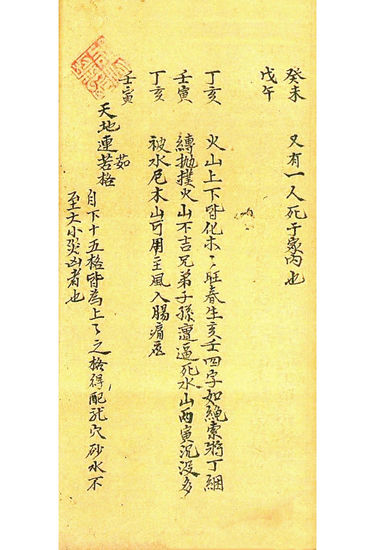 癸未
戊午　又有一人死于家內也
丁亥　火山上下皆化木々旺春生亥壬四字如繩索將丁綑
壬寅　縛拋撲火山不吉兄弟子孫遭逼死水山兩寅沉沒多
丁亥　被水厄木山可用主風入腸癆症
壬寅
天地連茹格
自下十五格皆為上々之格得配龍穴砂水不
至大小災凶者也